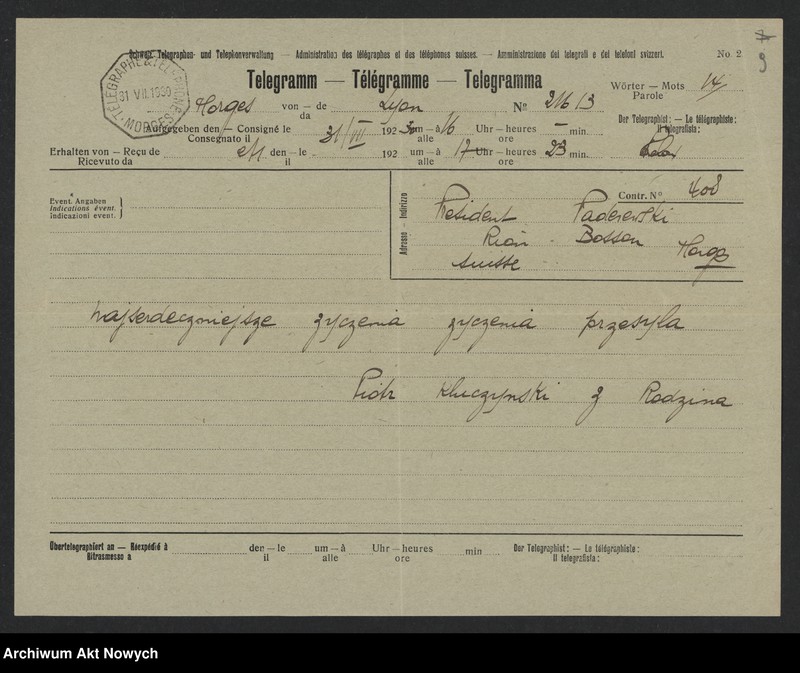 Schweiz. Telegraphen- und Telephonverwaltung — Administration des télégraphes et des téléphones suisses. — Amministrazione dei telegrafi e dei telefoni svizzeri. No 2
9
TÉLÉGRAPHE & TÉLÉPHONE
31 VII. 1930
MORGES
Telegramm — Télégramme — Telegramma
Wörter — Mots 14
Parole
Morges von — de Lyon No 21613
da
Der Telegraphist: — Le télégraphiste:
Il telegrafista:
Aufgegeben den — Consigné le 31/VII 1930 um — à 16 Uhr — heures — min.
Consegnato il alle ore
Erhalten von — Reçu de den — le 192 um — à 17 Uhr — heures 23 min.
Ricevuto da il alle ore
Event. Angaben
Indications évent.
Indicazioni event.
Adresse — Indirizzo
Contr. No 408
President Paderewski
Rion Bosson Morges
Suisse
najserdeczniejsze zyczenia zyczenia przesyla
Piotr Kluczynski z Rodzina
Übertelegraphiert an — Réexpédié à den — le um — à Uhr — heures min Der Telegraphist: — Le télégraphiste:
Ritrasmesso a il alle ore Il telegrafista:
Archiwum Akt Nowych